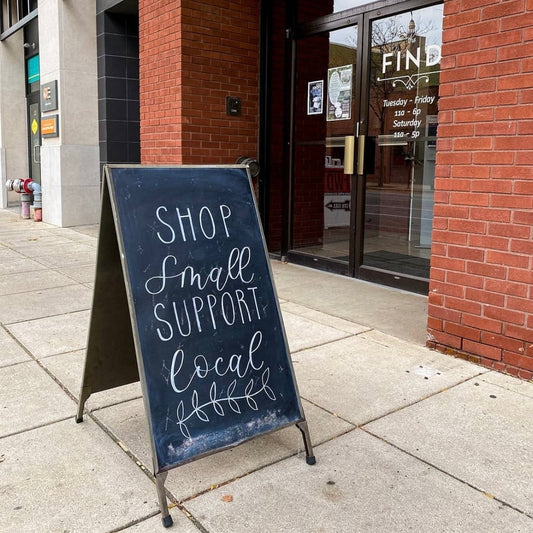 SHOP
Small
SUPPORT
local
FIND
Tuesday - Friday
11a - 6p
Saturday
11a - 5p